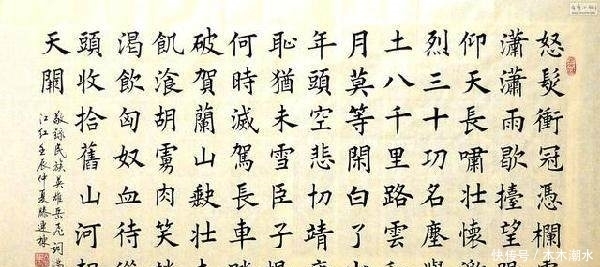 怒髮衝冠憑欄
瀟瀟雨歇擡望
仰天長嘯壯懷
烈三十功名塵與
土八千里路雲
月莫等閑白了
年頭空悲切靖
恥猶未雪臣子
何時滅駕長車
破賀蘭山缺壯
飢湌胡虜肉笑
渴飲匈奴血待從
頭收拾舊山河
天闕
敬録民族英雄岳飛詞滿
江紅壬辰仲夏滕連棟
快传号/木木潮水